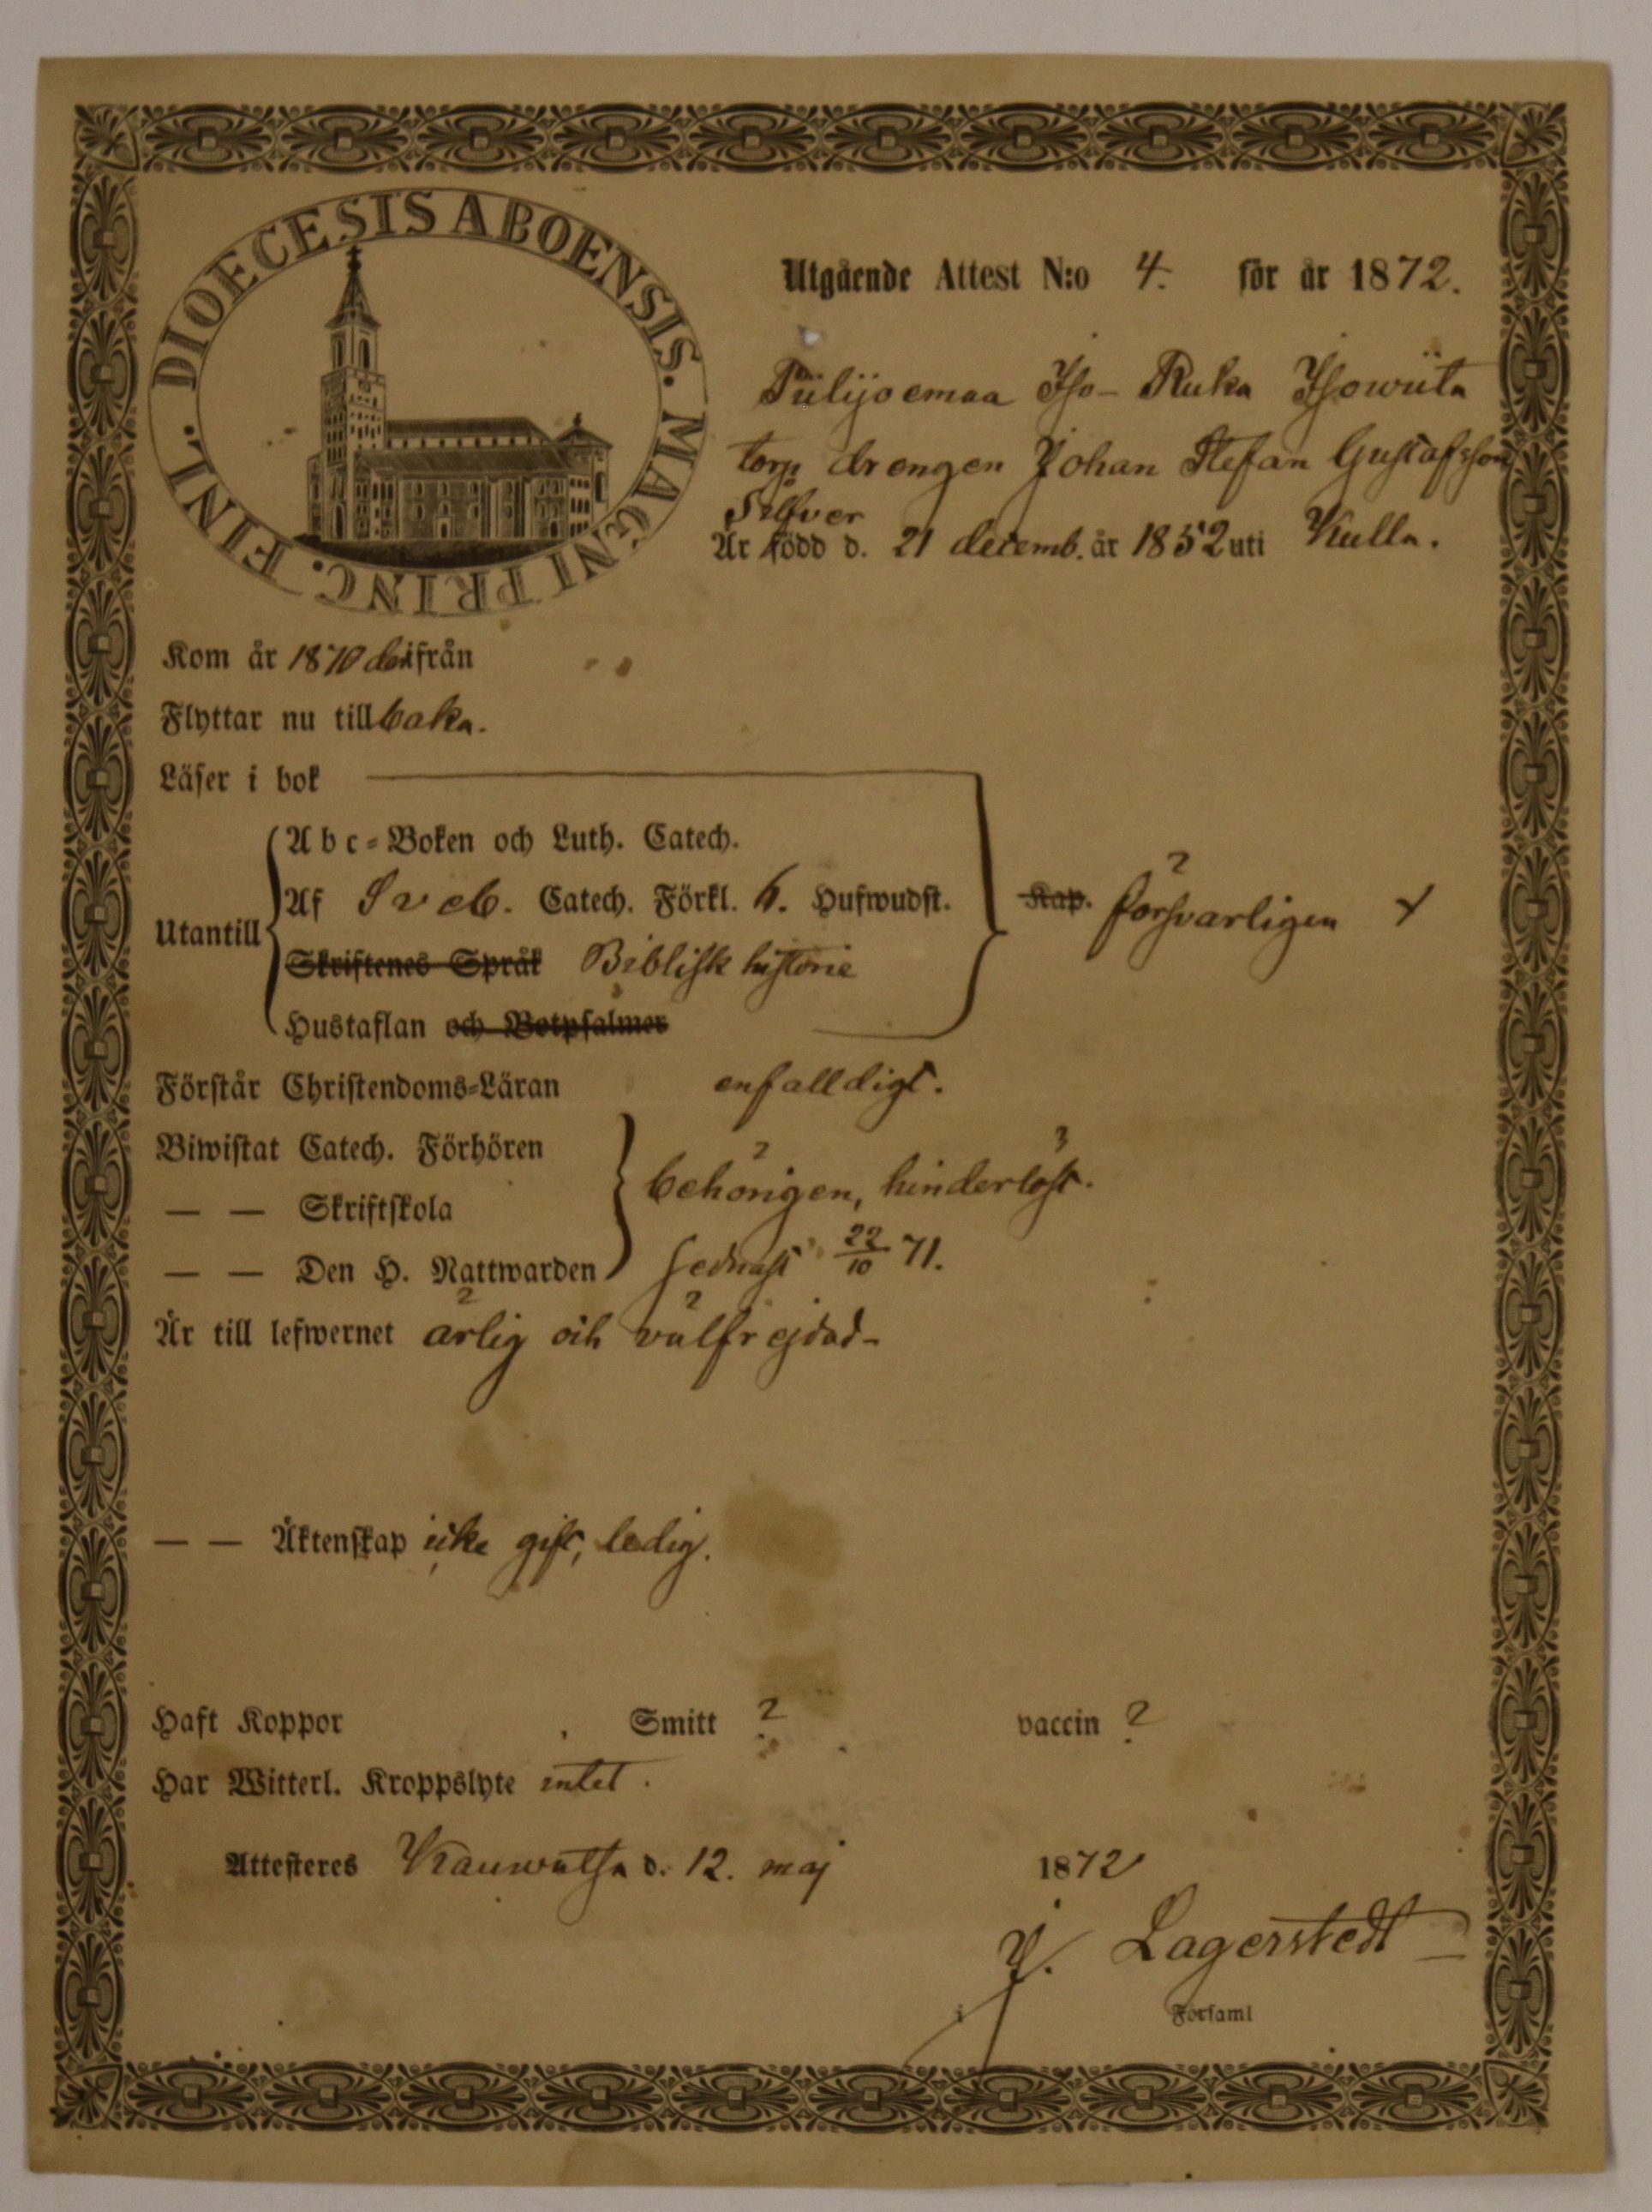 DIOECESIS ABOENSIS. MAGNI PRINC. FINL.
Utgående Attest N:o 4. för år 1872.
Piilijoemaa Iso-Ruka Isowiita
torp drengen Johan Stefan Gustafsson
Silfver
Är född d. 21 decemb. år 1852 uti Kulla.
Kom år 1870 derifrån
Flyttar nu tillbaka.
Läser i bok
Abc-Boken och Luth. Catech.
Utantill
Af Sveb. Catech. Förkl. 6. Hufwudst.
Kap. försvarligen
Skriftenes Språk Biblisk historie
Hustaflan och Botpsalmer
Förstår Christendoms-Läran enfalldigt.
Biwistat Catech. Förhören
behörigen, hinderlöst.
— — Skriftskola
— — Den H. Nattwarden sednast 22/10 71.
Är till lefwernet ärlig och välfrejdad-
— — Äktenskap icke gift, ledig.
Haft Koppor Smitt ? vaccin ?
Har Witterl. Kroppslyte intet.
Attesteres Kauwatsa d. 12. maj 1872
J. Lagerstedt
i Församl